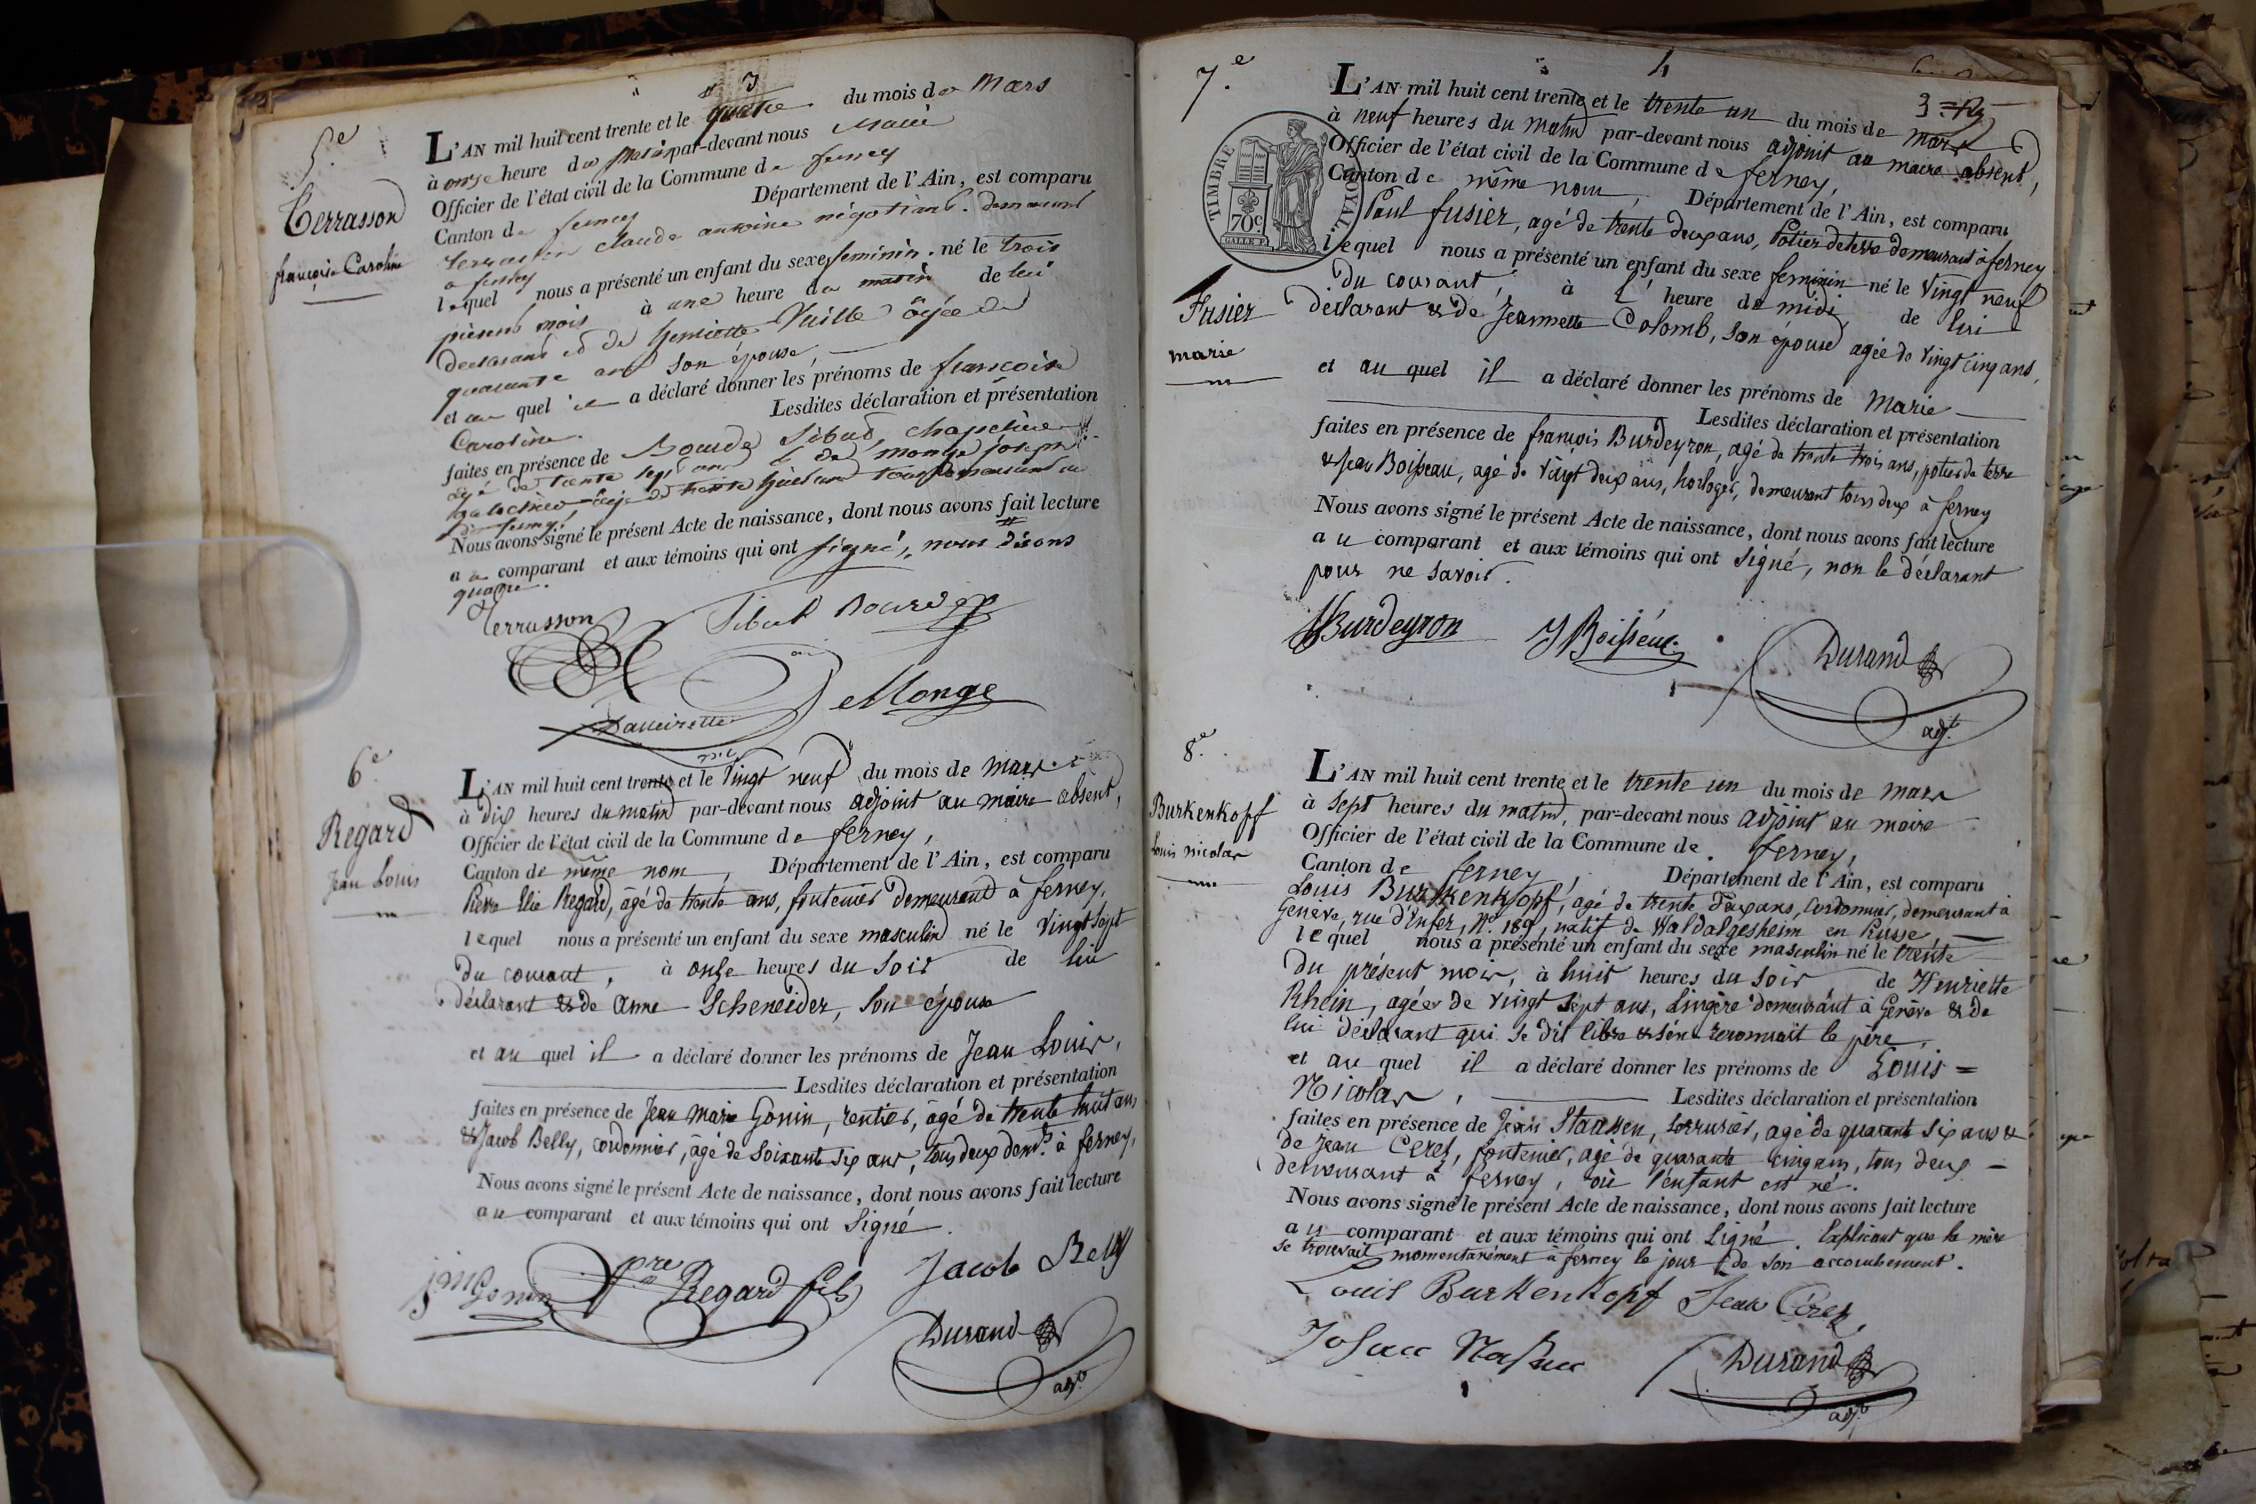 3
5.e
Terrasson
françoise Caroline
L'AN mil huit cent trente et le quatre du mois de Mars
à onze heure du matin par-devant nous Maire
Officier de l'état civil de la Commune de ferney
Canton de ferney Département de l'Ain, est comparu
terrasson Claude antoine négotiant. demeurant
a ferney
lequel nous a présenté un enfant du sexe feminin. né le trois
présent mois à une heure du matin de lui
declarant et de henriette Vuille âgée de
quarante ans son épouse,
et au quel il a déclaré donner les prénoms de francoise
Caroline. Lesdites déclaration et présentation
faites en présence de Bourdg Sibut, chapelier
agé de trente sept ans & de monge joseph
agé de trente huit ans tous demeurant
à ferney.
Nous avons signé le présent Acte de naissance, dont nous avons fait lecture
au comparant et aux témoins qui ont signé, nous disons
quatre.
Terrasson Sibut
DeMonge
6e
Regard
Jean Louis
L'AN mil huit cent trente et le Vingt neuf du mois de mars
à dix heures du matin par-devant nous adjoint au maire absent,
Officier de l'état civil de la Commune de ferney,
Canton de même nom, Département de l'Ain, est comparu
Pierre Elie Regard, âgé de trente ans, fontenier demeurant à ferney,
lequel nous a présenté un enfant du sexe masculin né le Vingt sept
du courant, à onze heures du soir de lui
déclarant & de anne Scheneider, son épouse
et au quel il a déclaré donner les prénoms de Jean Louis,
Lesdites déclaration et présentation
faites en présence de Jean Marie Gonin, rentier, âgé de trente huit ans
& Jacob Belly, cordonnier, âgé de soixante six ans, tous deux demts à ferney,
Nous avons signé le présent Acte de naissance, dont nous avons fait lecture
au comparant et aux témoins qui ont Signé.
jm Gonin pre Regard fils Jacob Belly
Durand
adjt
4
7.e
TIMBRE ROYAL
70c
Fusier
marie
L'AN mil huit cent trente et le trente un du mois de mars
à neuf heures du matin par-devant nous adjoint au maire absent,
Officier de l'état civil de la Commune de ferney,
Canton de même nom, Département de l'Ain, est comparu
Paul fusier, agé de trente deux ans, Potier de terre demeurant à ferney
lequel nous a présenté un enfant du sexe feminin né le Vingt neuf
du courant, à l' heure de midi, de lui
déclarant & de Jeannette Colomb, son épouse agée de vingt cinq ans,
et au quel il a déclaré donner les prénoms de Marie
Lesdites déclaration et présentation
faites en présence de françois Burdeyron, agé de trente trois ans, potier de terre
& Jean Boisseau, agé de vingt deux ans, horloger, demeurant tous deux à ferney
Nous avons signé le présent Acte de naissance, dont nous avons fait lecture
au comparant et aux témoins qui ont Signé, non le déclarant
pour ne savoir.
Burdeyron J Boisseau Durand
adjt
8.e
Burkenkopf
Louis nicolas
L'AN mil huit cent trente et le trente un du mois de mars
à sept heures du matin, par-devant nous adjoint au maire
Officier de l'état civil de la Commune de ferney,
Canton de ferney, Département de l'Ain, est comparu
Louis Burkenkopf, agé de trente deux ans, Cordonnier, demeurant à
Genève, rue d'Enfer, No. 189, natif de Waldalgesheim en Prusse,
lequel nous a présenté un enfant du sexe masculin né le trente
du présent mois, à huit heures du soir de Henriette
Rhein, agée de vingt sept ans, Lingère demeurant à Genève & de
lui déclarant qui se dit libre & s'en reconnait le père,
et au quel il a déclaré donner les prénoms de Louis =
Nicolas, Lesdites déclaration et présentation
faites en présence de Jean Staassen, serrurier, agé de quarante six ans &
de Jean Cerez, fontenier, agé de quarante cinq ans, tous deux
demeurant à ferney, où l'enfant est né.
Nous avons signé le présent Acte de naissance, dont nous avons fait lecture
au comparant et aux témoins qui ont Signé. Expliquant que la mère
se trouvait momentanément à ferney le jour de son accouchement.
Louis Burkenkopf Jean Cérez,
Durand
adjt